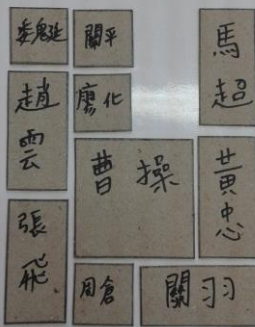 魏延
關平
馬超
趙雲
廖化
曹操
黃忠
張飛
周倉
關羽